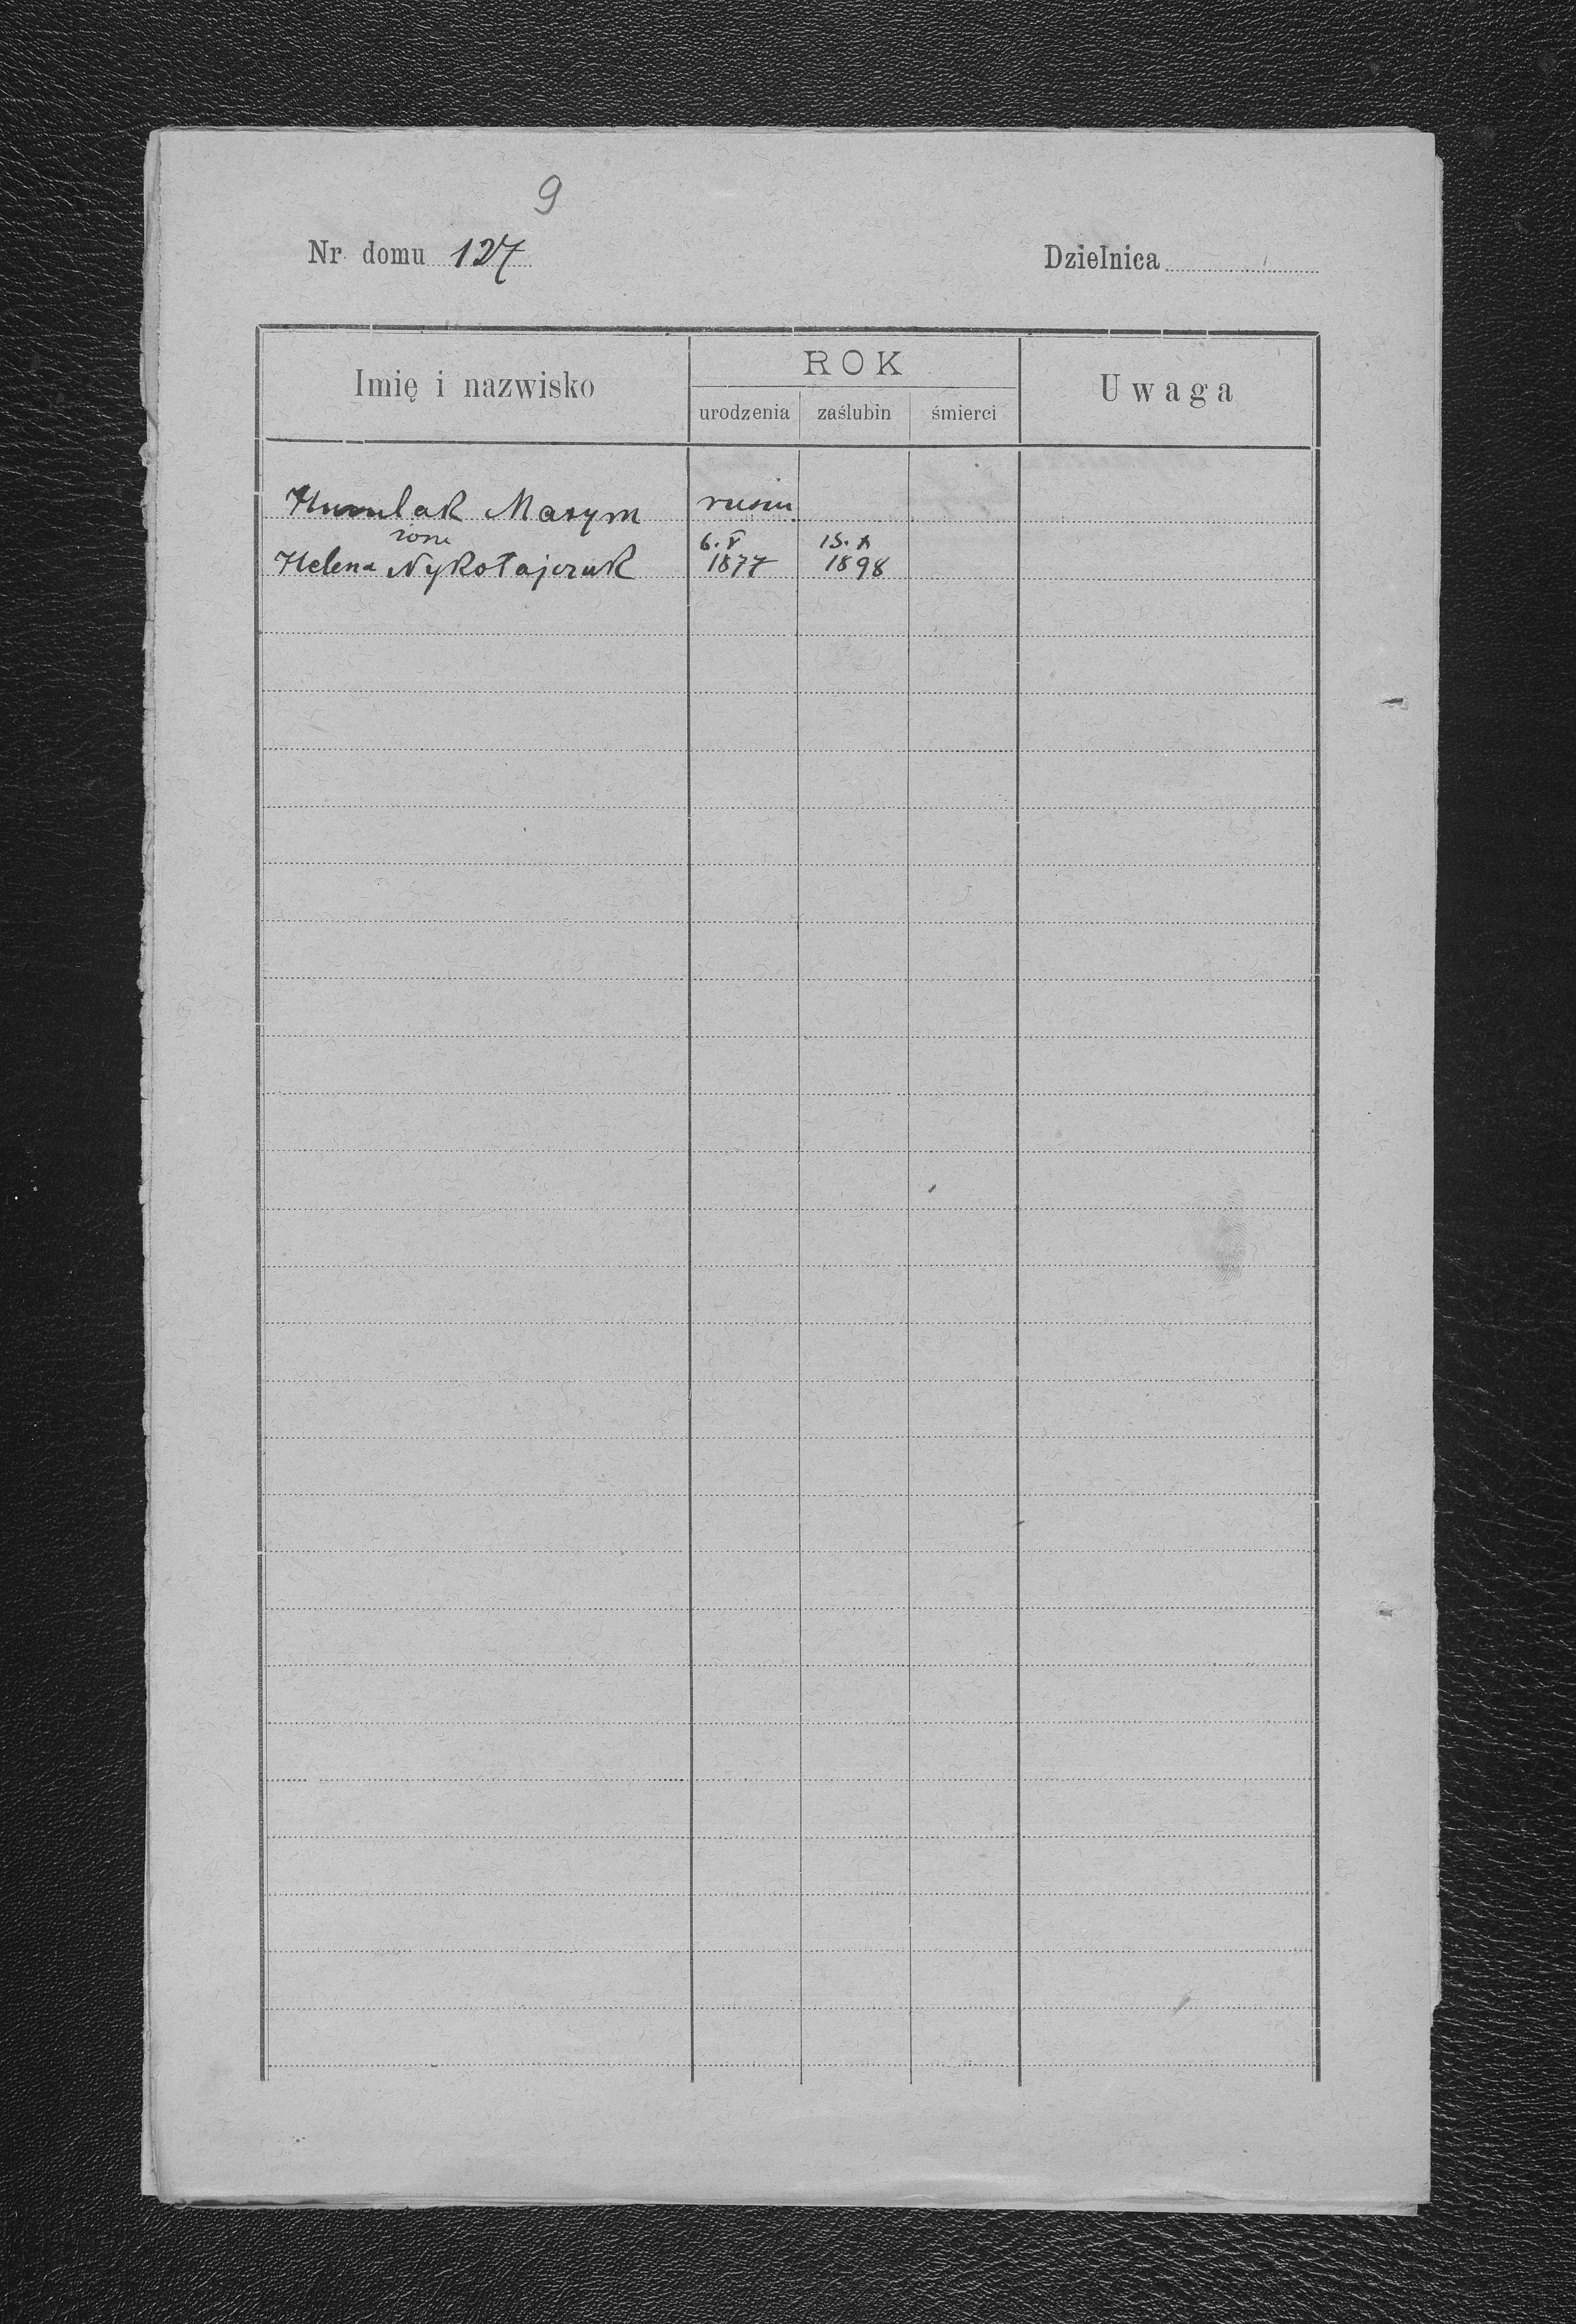 9
Nr domu 127
Dzielnica
Imię i nazwisko
ROK
Uwaga
urodzenia
zaślubin
śmierci
Maxym rusin
żona 6.V 15.X
Helena Nykołajczuk 1877 1898